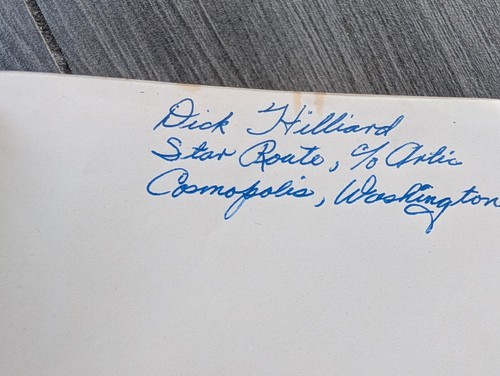 Dick Hilliard
Star Route, c/o Artic
Cosmopolis, Washington